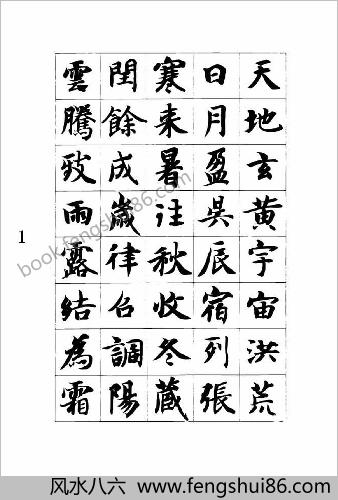 天地玄黄宇宙洪荒
日月盈昃辰宿列張
寒来暑往秋收冬藏
閏餘成歲律召調陽
雲騰致雨露結為霜
1
book.fengshui86.com
风水八六 www.fengshui86.com